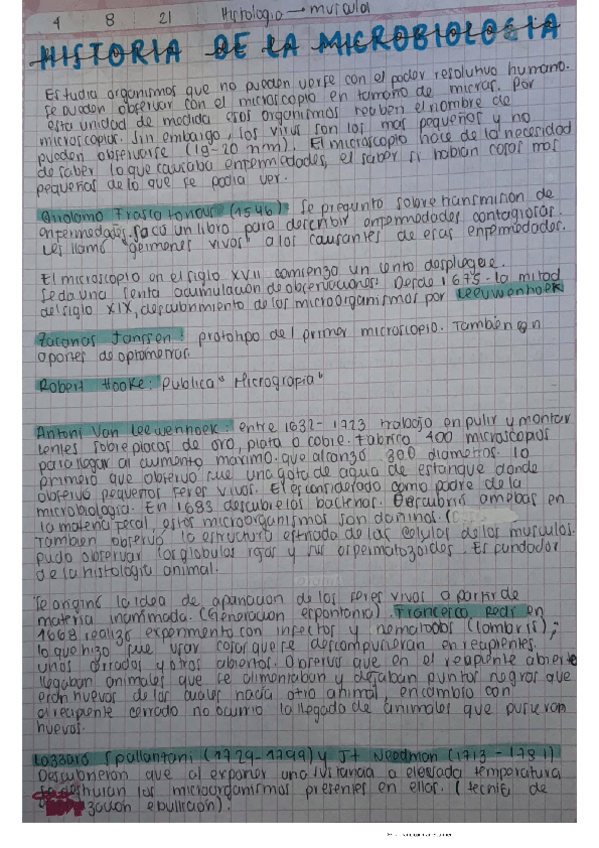 4 8 21 Histologia → muscular
HISTORIA DE LA MICROBIOLOGIA
Estudia organismos que no pueden verse con el poder resolutivo humano.
Se pueden observar con el microscopio en tamaño de micras. Por
esta unidad de medida esos organismos reciben el nombre de
microscopios. Sin embargo, los virus son los mas pequeños y no
pueden observarse (19-20 nm). El microscopio nace de la necesidad
de saber lo que causaba enfermedades, el saber si habian cosas mas
pequeñas de lo que se podia ver.
Girolamo Frascatorious (1546): se pregunto sobre transmision de
enfermedades. Saco un libro para describir enfermedades contagiosas.
Les llamó "germenes vivos" a los causantes de esas enfermedades.
El microscopio en el siglo XVII comienza un lento despliegue.
Se da una lenta acumulación de observaciones. Desde 1675- la mitad
del siglo XIX, descubrimiento de los microorganismos por Leeuwenhoek
Zacarias Janssen: prototipo del primer microscopio. Tambien con
aportes de optometras.
Robert Hooke: Publica "Micrografia"
Antoni Van Leewenhoek: entre 1632-1723 trabajo en pulir y montar
lentes sobre placas de oro, plata o cobre. Fabricó 400 microscopios
para llegar al aumento maximo que alcanzó 300 diametros. lo
primero que observo fue una gota de agua de estanque donde
observó pequeños seres vivos. El es considerado como padre de la
microbiologia. En 1683 descubre las bacterias. Descubrió amebas en
la materia fecal, estos microorganismos son dañinos.
Tambien observó la estructura estriada de las celulas de los musculos.
pudo observar los globulos rojos y sus espermatozoides. Es fundador
de la histologia animal.
Se originó la idea de aparicion de los seres vivos a partir de
materia inanimada. (Generacion espontania). Francesco Redi en
1668 realizó experimento con insectos y nematodos (lombriz);
lo que hizo fue usar cosas que se descompusieran en recipientes.
unos cerrados y otros abiertos. Observo que en el recipiente abierto
llegaban animales que se alimentaban y dejaban puntos negros que
eran huevos de los cuales nacía otro animal, en cambio con
el recipiente cerrado no ocurrio la llegada de animales que pusieran
huevos.
Lazzaro Spallantani (1729-1799) y Jt Needman (1713 - 1781)
Descubrieron que al exponer una sustancia a elevada temperatura
destruian los microorganismos presentes en ellas. (tecnic de
ización ebullición).